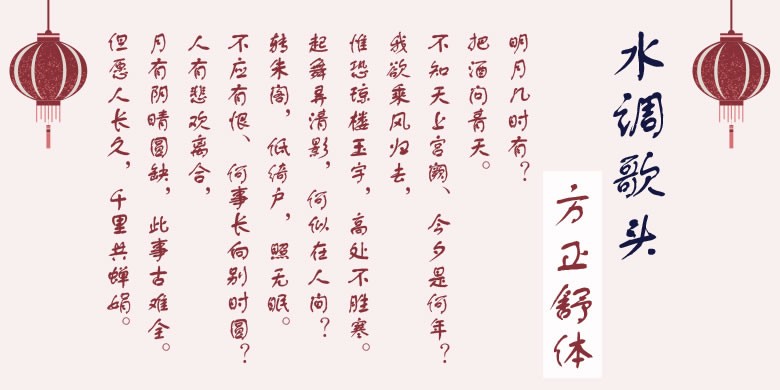 水调歌头
方正舒体
明月几时有？
把酒问青天。
不知天上宫阙、今夕是何年？
我欲乘风归去，
惟恐琼楼玉宇，高处不胜寒。
起舞弄清影，何似在人间？
转朱阁，低绮户，照无眠。
不应有恨、何事长向别时圆？
人有悲欢离合，
月有阴晴圆缺，此事古难全。
但愿人长久，千里共蝉娟。